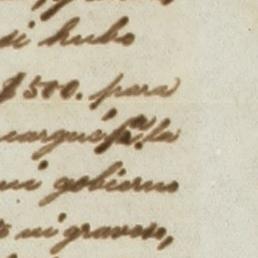 si hubo
$500. para
ncargué pª. la
ni gobierno
ni gravoso,